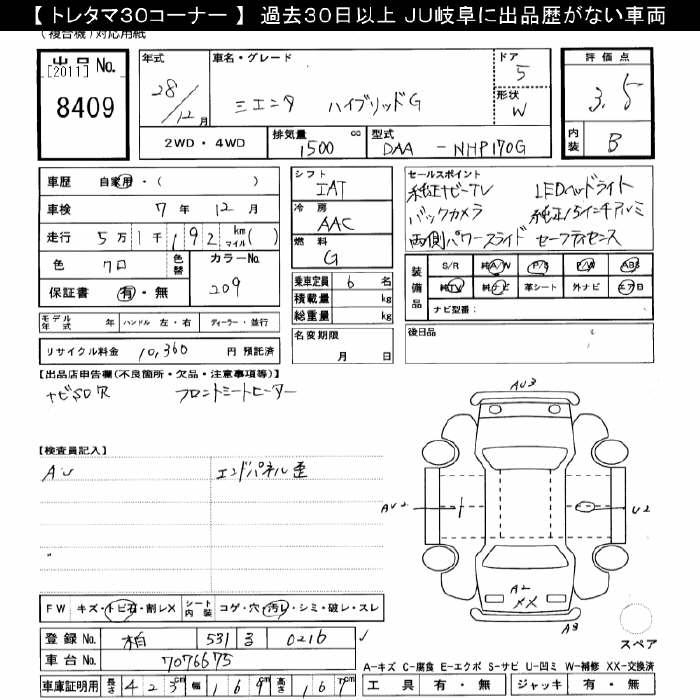 【 トレタマ30コーナー 】 過去30日以上 JU岐阜に出品歴がない車両
(複合機)対応用紙
出品 No.
[2011]
8409
年式
28/12月
車名・グレード
シエンタ ハイブリッドG
ドア
5
形状
W
評価点
3.5
内装
B
2WD・4WD
排気量
1500
cc
型式
DAA - NHP170G
車歴 自家用・( )
車検 7年 12月
走行 5万 1千 192 km マイル ( )
色 クロ
色替
カラーNo.
209
保証書 有・無
シフト
IAT
冷房
AAC
燃料
G
乗車定員 6 名
積載量 kg
総重量 kg
名変期限
月 日
セールスポイント
純正ナビTV LEDヘッドライト
バックカメラ 純正15インチアルミ
両側パワースライド セーフティセンス
装備品
S/R 純A/W P/S P/W ABS
純TV 純ナビ 革シート 外ナビ エアB
ナビ型番:
モデル年式 年 ハンドル 左・右 ディーラー・並行
リサイクル料金 10,360 円 預託済
後日品
【出品店申告欄(不良箇所・欠品・注意事項等)】
ナビSD欠 フロントシートヒーター
【検査員記入】
AU
エンドパネル歪
AU3
AU2
U2
A2
XX
A3
スペア
FW キズ・トビ石・割レX
シート内装 コゲ・穴・汚レ・シミ・破レ・スレ
登録 No. 柏 531 る 0216
車台 No. 7076675
車庫証明用 長さ 423cm 幅 169cm 高さ 167
A-キズ C-腐食 E-エクボ S-サビ U-凹ミ W-補修 XX-交換済
工具 有・無 ジャッキ 有・無